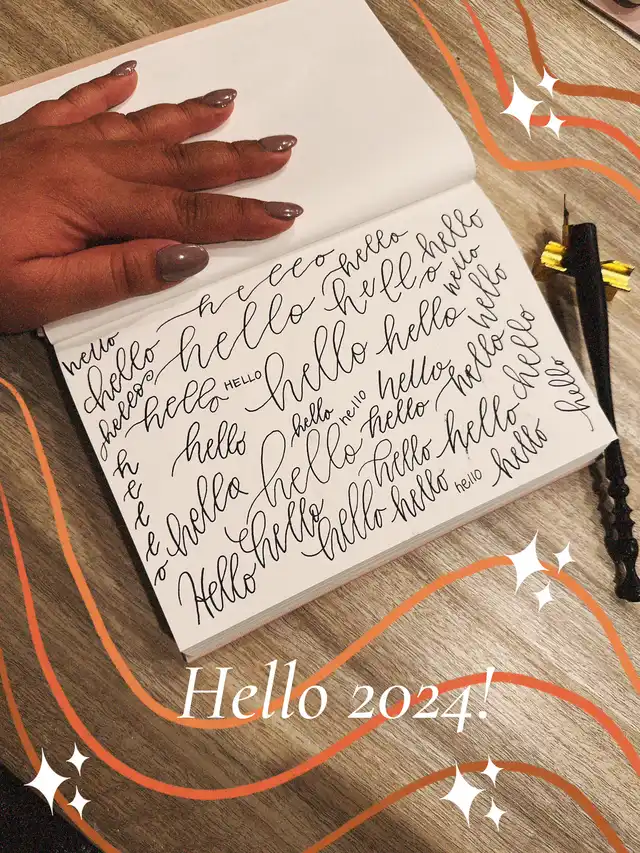 hello
hello
hello
hello
hello
hello
hello
hello
hello
hello
hello
hello
HELLO
hello
hello
hello
hello
hello
hello
hello
hello
hello
hello
hello
hello
hello
hello
hello
hello
hello
hello
Hello
hello
hello
hello
hello
hello
Hello 2024!